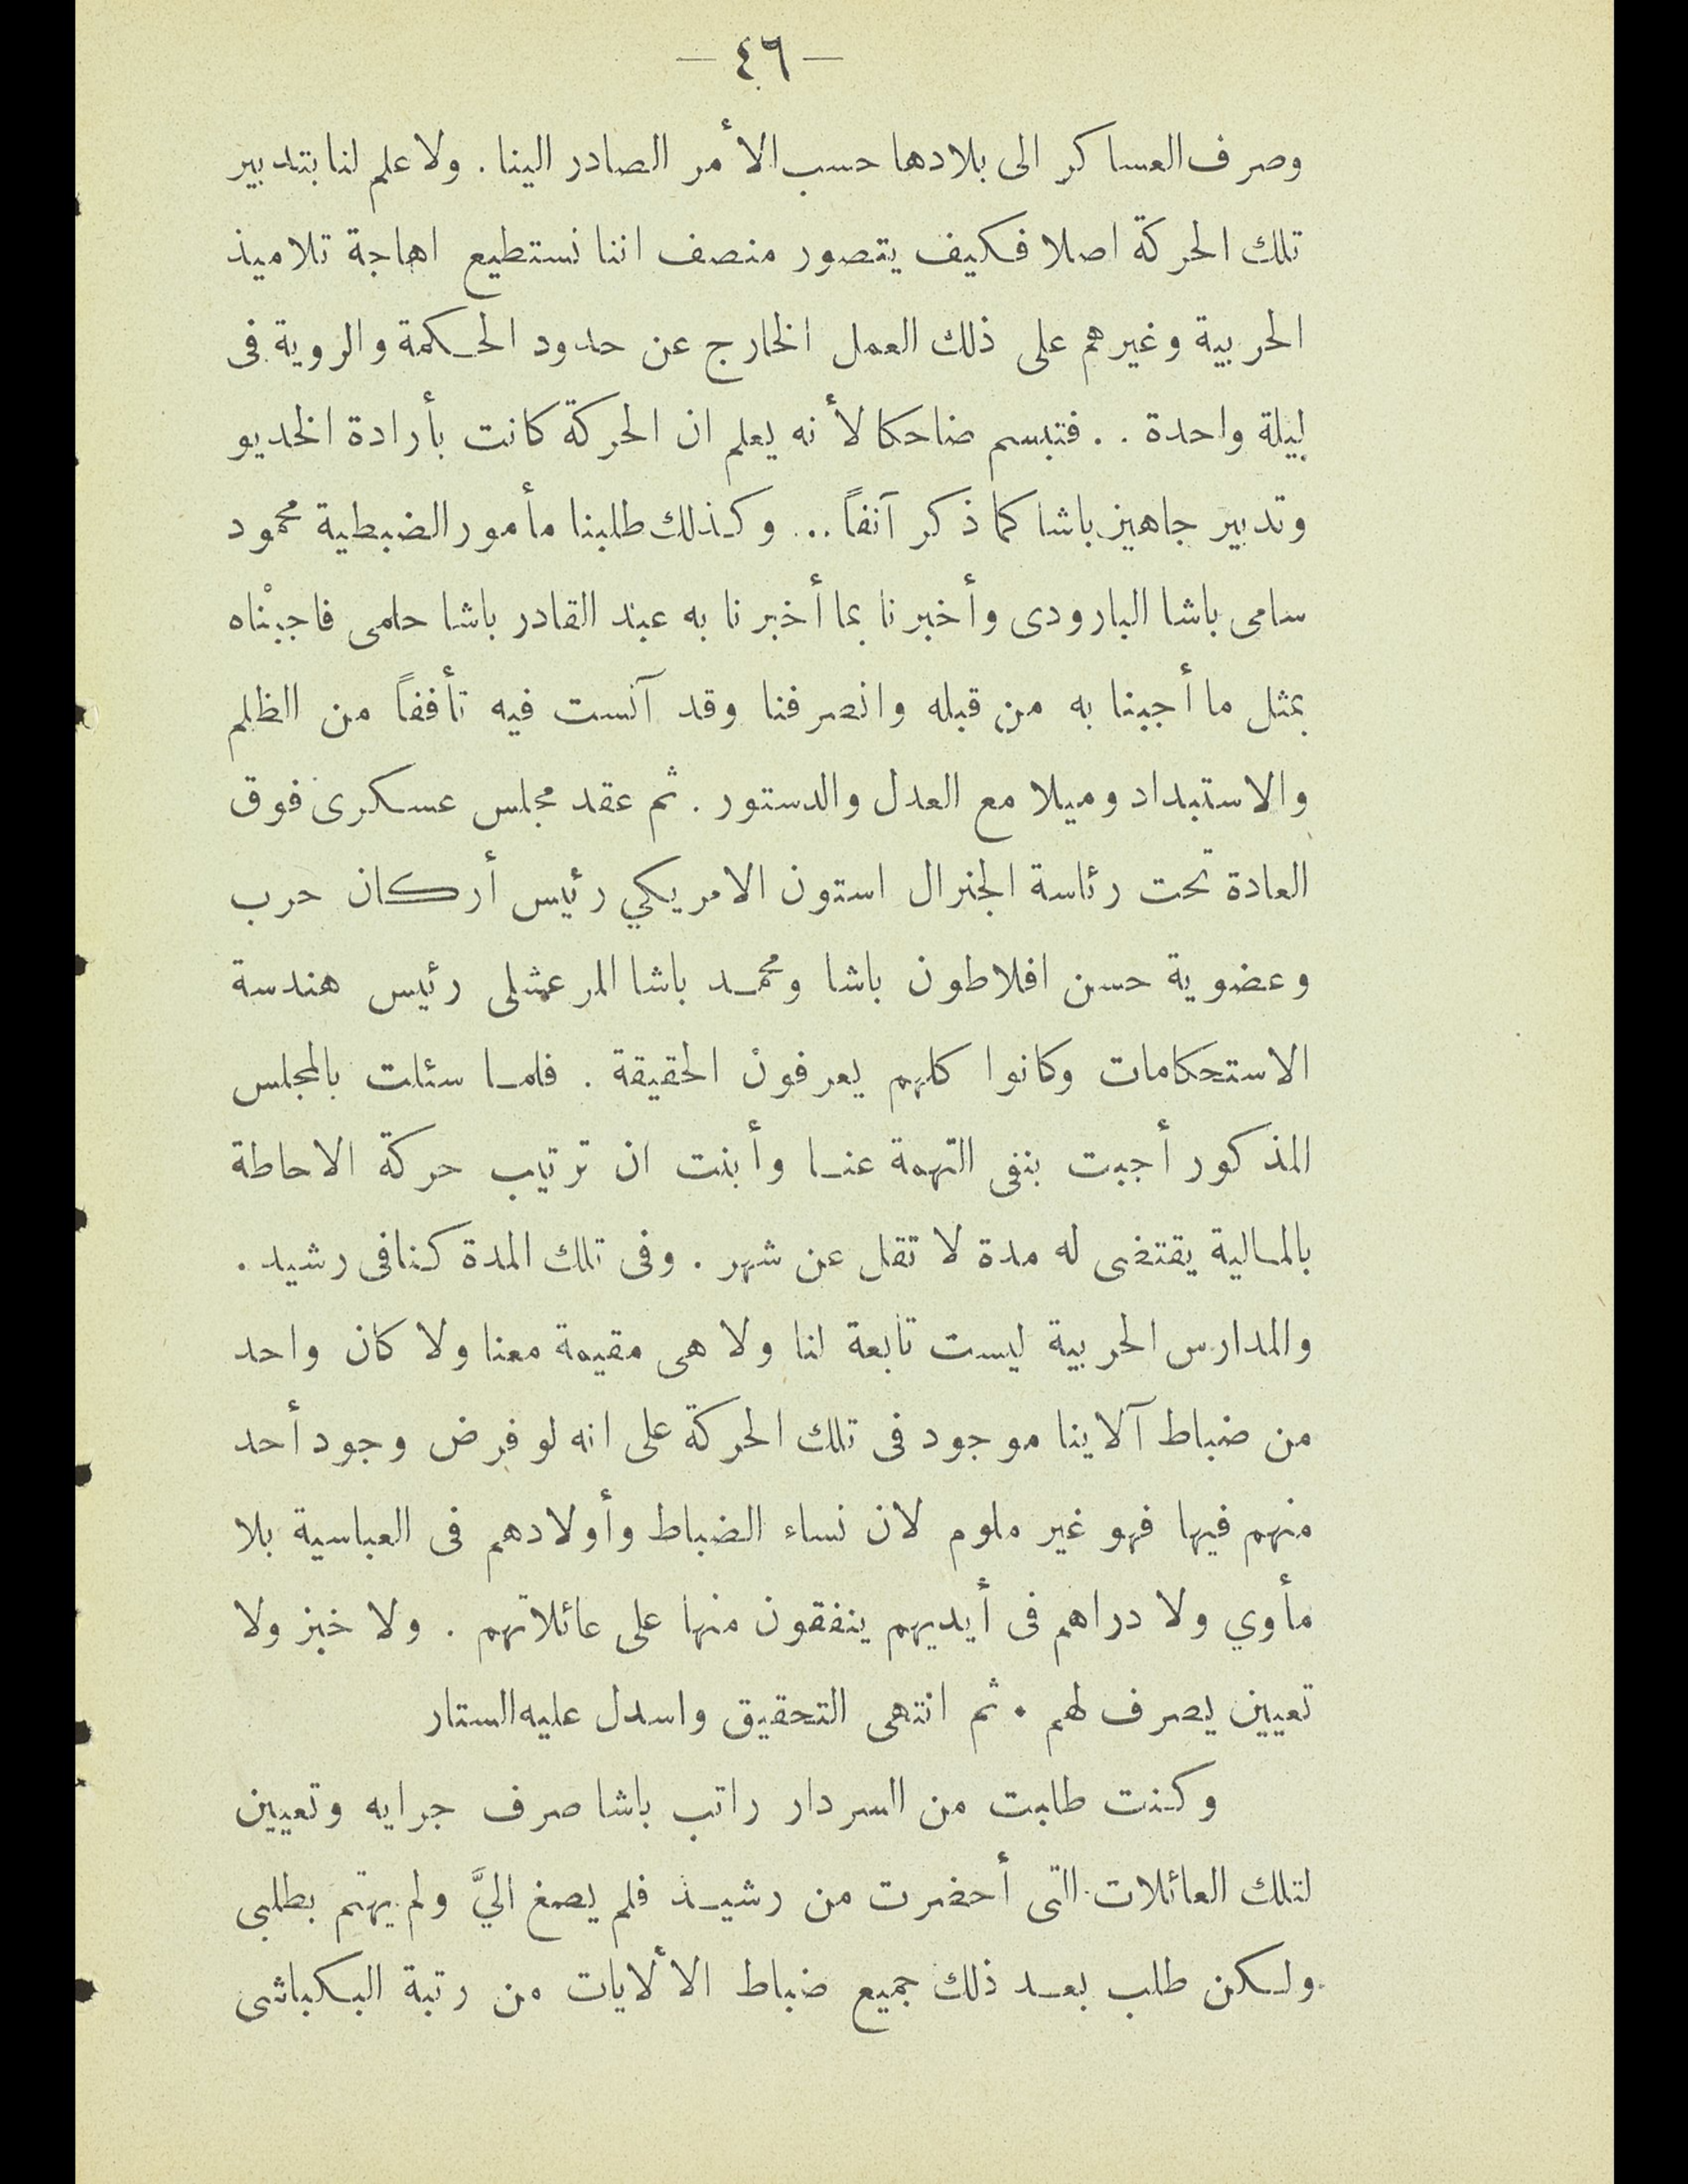 — ٤٦ —
وصرف العساكر الى بلادها حسب الأمر الصادر الينا . ولا علم لنا بتدبير
تلك الحركة اصلا فكيف يتصور منصف اننا نستطيع اهاجة تلاميذ
الحربية وغيرهم على ذلك العمل الخارج عن حدود الحكمة والروية فى
ليلة واحدة . . فتبسم ضاحكا لأنه يعلم ان الحركة كانت بأرادة الخديو
وتدبير جاهين باشا كما ذكر آنفاً ... وكذلك طلبنا مأمور الضبطية محمود
سامى باشا البارودى وأخبرنا بما أخبرنا به عبد القادر باشا حلمى فاجبناه
بمثل ما أجبنا به من قبله وانصرفنا وقد آنست فيه تأففاً من الظلم
والاستبداد وميلا مع العدل والدستور . ثم عقد مجلس عسكرى فوق
العادة تحت رئاسة الجنرال استون الامريكي رئيس أركان حرب
وعضوية حسن افلاطون باشا ومحمد باشا المرعشلى رئيس هندسة
الاستحكامات وكانوا كلهم يعرفون الحقيقة . فلما سئلت بالمجلس
المذكور أجبت بنفى التهمة عنا وأبنت ان ترتيب حركة الاحاطة
بالمالية يقتضى له مدة لا تقل عن شهر . وفى تلك المدة كنا فى رشيد .
والمدارس الحربية ليست تابعة لنا ولا هى مقيمة معنا ولا كان واحد
من ضباط آلاينا موجود فى تلك الحركة على انه لو فرض وجود أحد
منهم فيها فهو غير ملوم لان نساء الضباط وأولادهم فى العباسية بلا
مأوي ولا دراهم فى أيديهم ينفقون منها على عائلاتهم . ولا خبز ولا
تعيين يصرف لهم . ثم انتهى التحقيق واسدل عليه الستار
وكنت طلبت من السردار راتب باشا صرف جرايه وتعيين
لتلك العائلات التى أحضرت من رشيد فلم يصغ اليَّ ولم يهتم بطلبى
ولكن طلب بعد ذلك جميع ضباط الألايات من رتبة البكباشى